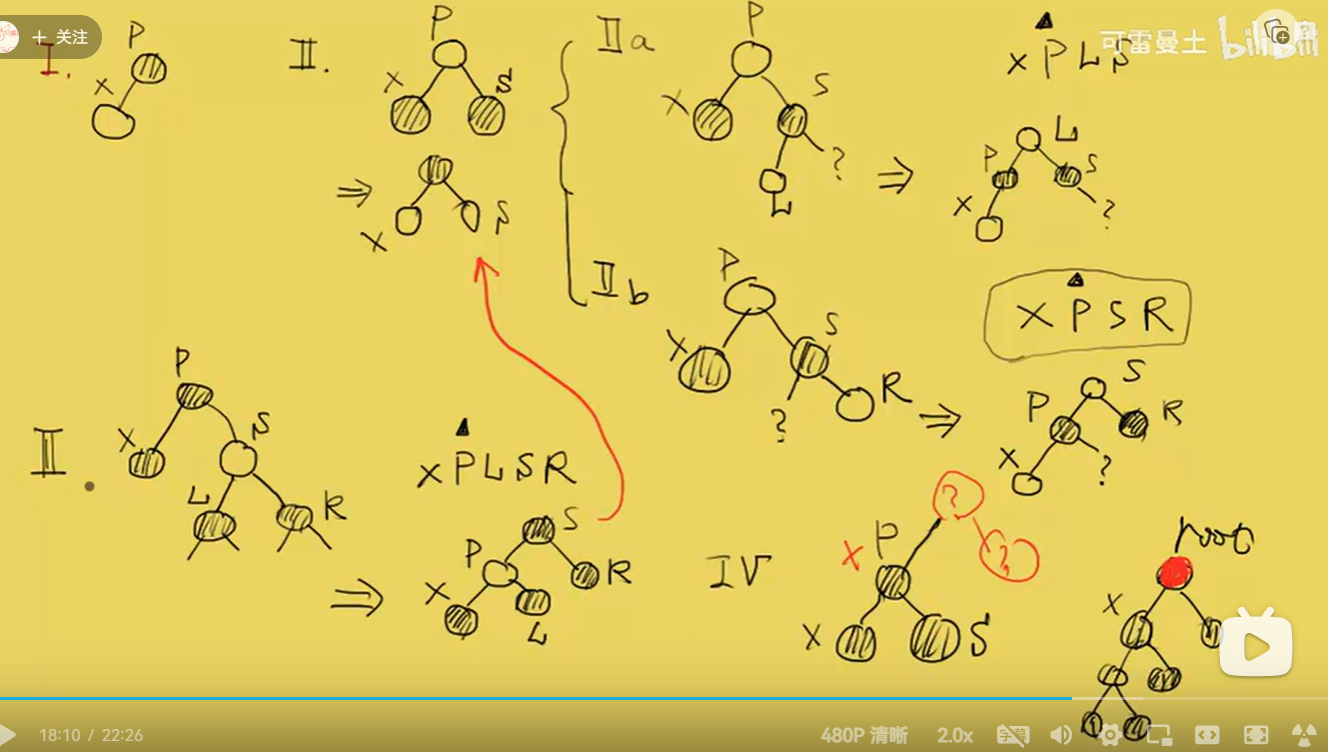 + 关注
可雷曼土 bilibili
I.
P
X
II.
P
X
S
X
S
IIa
P
X
S
?
L
X P L S
L
P
S
X
?
IIb
P
X
S
?
R
X P S R
S
P
R
X
?
II.
P
X
S
L
R
X P L S R
S
P
R
X
L
IV
?
?
X
P
X
S
root
X
18:10 / 22:26
480P 清晰
2.0x
字幕